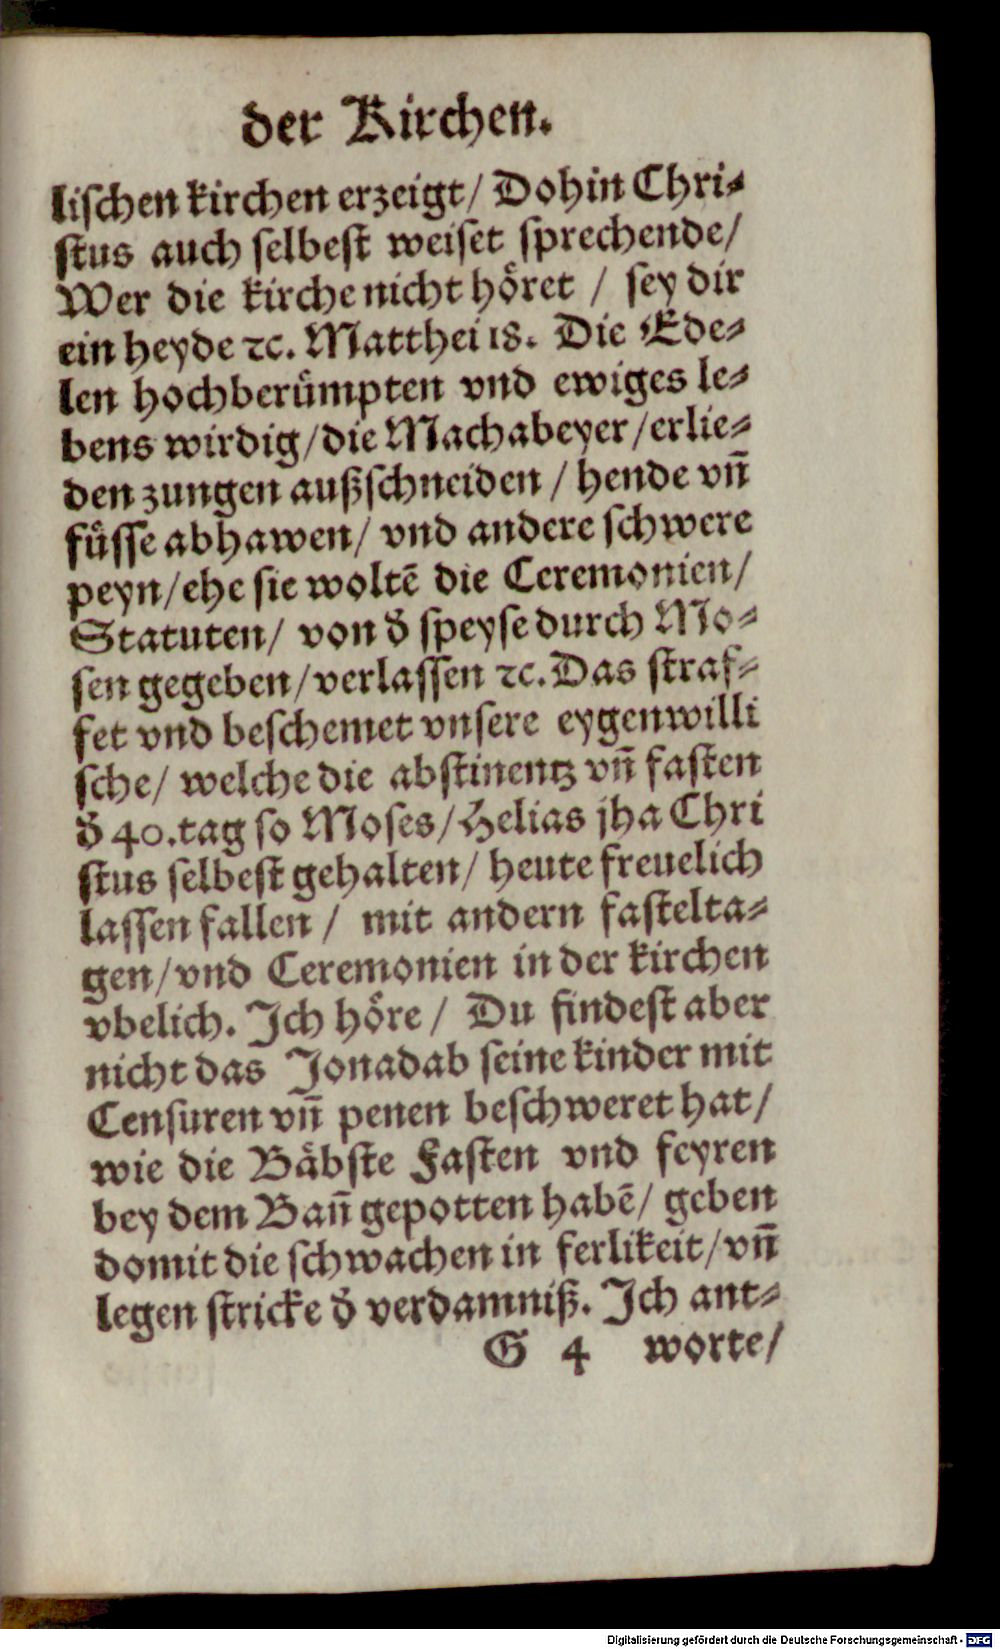 der Kirchen.
lischen kirchen erzeigt/ Dohin Chri⸗
stus auch selbest weiset sprechende/
Wer die kirche nicht hoͤret / sey dir
ein heyde ꝛc. Matthei 18. Die Ede⸗
len hochberuͤmpten vnd ewiges le⸗
bens wirdig/die Machabeyer/erlie⸗
den zungen außschneiden / hende vn̄
fuͤsse abhawen/ vnd andere schwere
peyn/ehe sie woltē die Ceremonien/
Statuten/ von d̄ speyse durch Mo⸗
sen gegeben/verlassen ꝛc. Das straf⸗
fet vnd beschemet vnsere eygenwilli
sche/ welche die abstinentz vn̄ fasten
d̄ 40.tag so Moses/Helias jha Chri
stus selbest gehalten/ heute freuelich
lassen fallen / mit andern fastelta⸗
gen/vnd Ceremonien in der kirchen
vbelich. Ich hoͤre / Du findest aber
nicht das Jonadab seine kinder mit
Censuren vn̄ penen beschweret hat/
wie die Baͤbste Fasten vnd feyren
bey dem Ban̄ gepotten habē/ geben
domit die schwachen in ferlikeit/vn̄
legen stricke d̄ verdamniß. Ich ant⸗
G 4 worte/
Digitalisierung gefördert durch die Deutsche Forschungsgemeinschaft - DFG